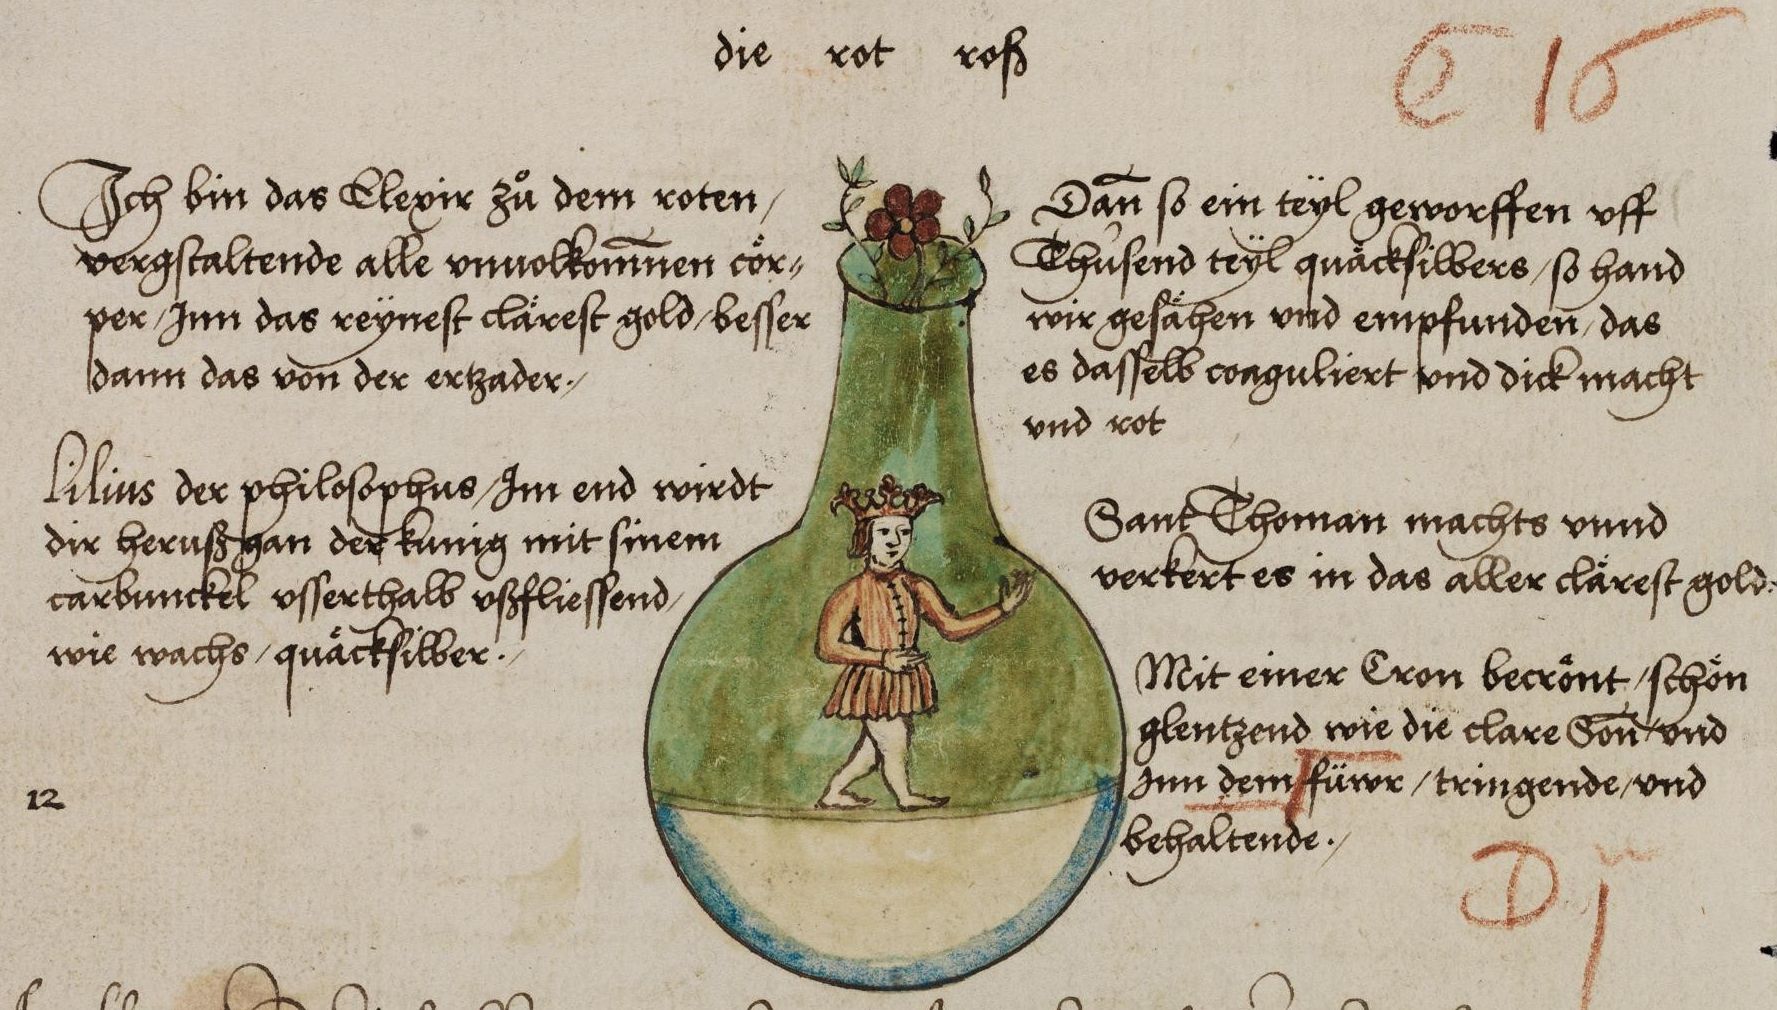 die rot roß
C 16
Ich bin das Elexir zů dem roten /
vergstaltende alle vnuolkom̄nen cör„
per / Inn das reÿnest clärest gold / besser
dann das von der ertzader ·/
Lilius der philosophus / Im end wirdt
dir herußgan der kunig mit sinem
carbunckel vsserthalb vßfliessend /
wie wachs / quäcksilber ·/
12
Dan̄ so ein teÿl geworffen vff
Thusend teÿl quäcksilbers / so hand
wir gesähen vnd empfunden / das
es dasselb coaguliert vnd dick macht
vnd rot
Sant Thoman machts vnnd
verkert es in das aller clärest gold:
Mit einer Cron becrönt / schön
glentzend wie die clare Son̄ vnd
Inn dem füwr / tringende / vnd
behaltende ·/
D j